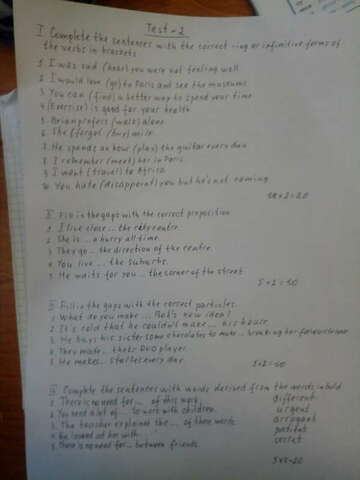 Test - 2
I Complete the sentences with the correct -ing or infinitive forms of
the verbs in brackets
1. I was sad (hear) you were not feeling well
2. I would love (go) to Paris and see the museums
3. You can (find) a better way to spend your time
4. (Exercise) is good for your health
5. Brian prefers (walk) alone.
6. She (forgot (buy) milk.
7. He spends an hour (play) the guitar every day
8. I remember (meet) her in Paris
9. I want (travel) to Africa.
10. You hate (disappoint) you but he's not coming
10 x 2 = 20
II Fill in the gaps with the correct preposition
1. I live close ... the city centre.
2. She is ... a hurry all time.
3. They go ... the direction of the centre.
4. You live ... the suburbs.
5. He waits for you ... the corner of the street
5 x 2 = 10
Fill in the gaps with the correct particles.
1. What do you make ... Bob's new idea?
2. It's cold that he couldn't make ... his house.
3. He buys his sister some chocolates to make ... breaking her
4. They made ... their DVD player.
5. He makes ... stories every day.
5 x 2 = 10
Complete the sentences with words derived from the words in bold
1. There is no need for ... of this work. different
2. You need a lot of ... to work with children. urgent
3. The teacher explained the ... of these words. arrogant
4. He looked at her with ...
5. There is no need for ... between friends. secret
5 x 4 = 20